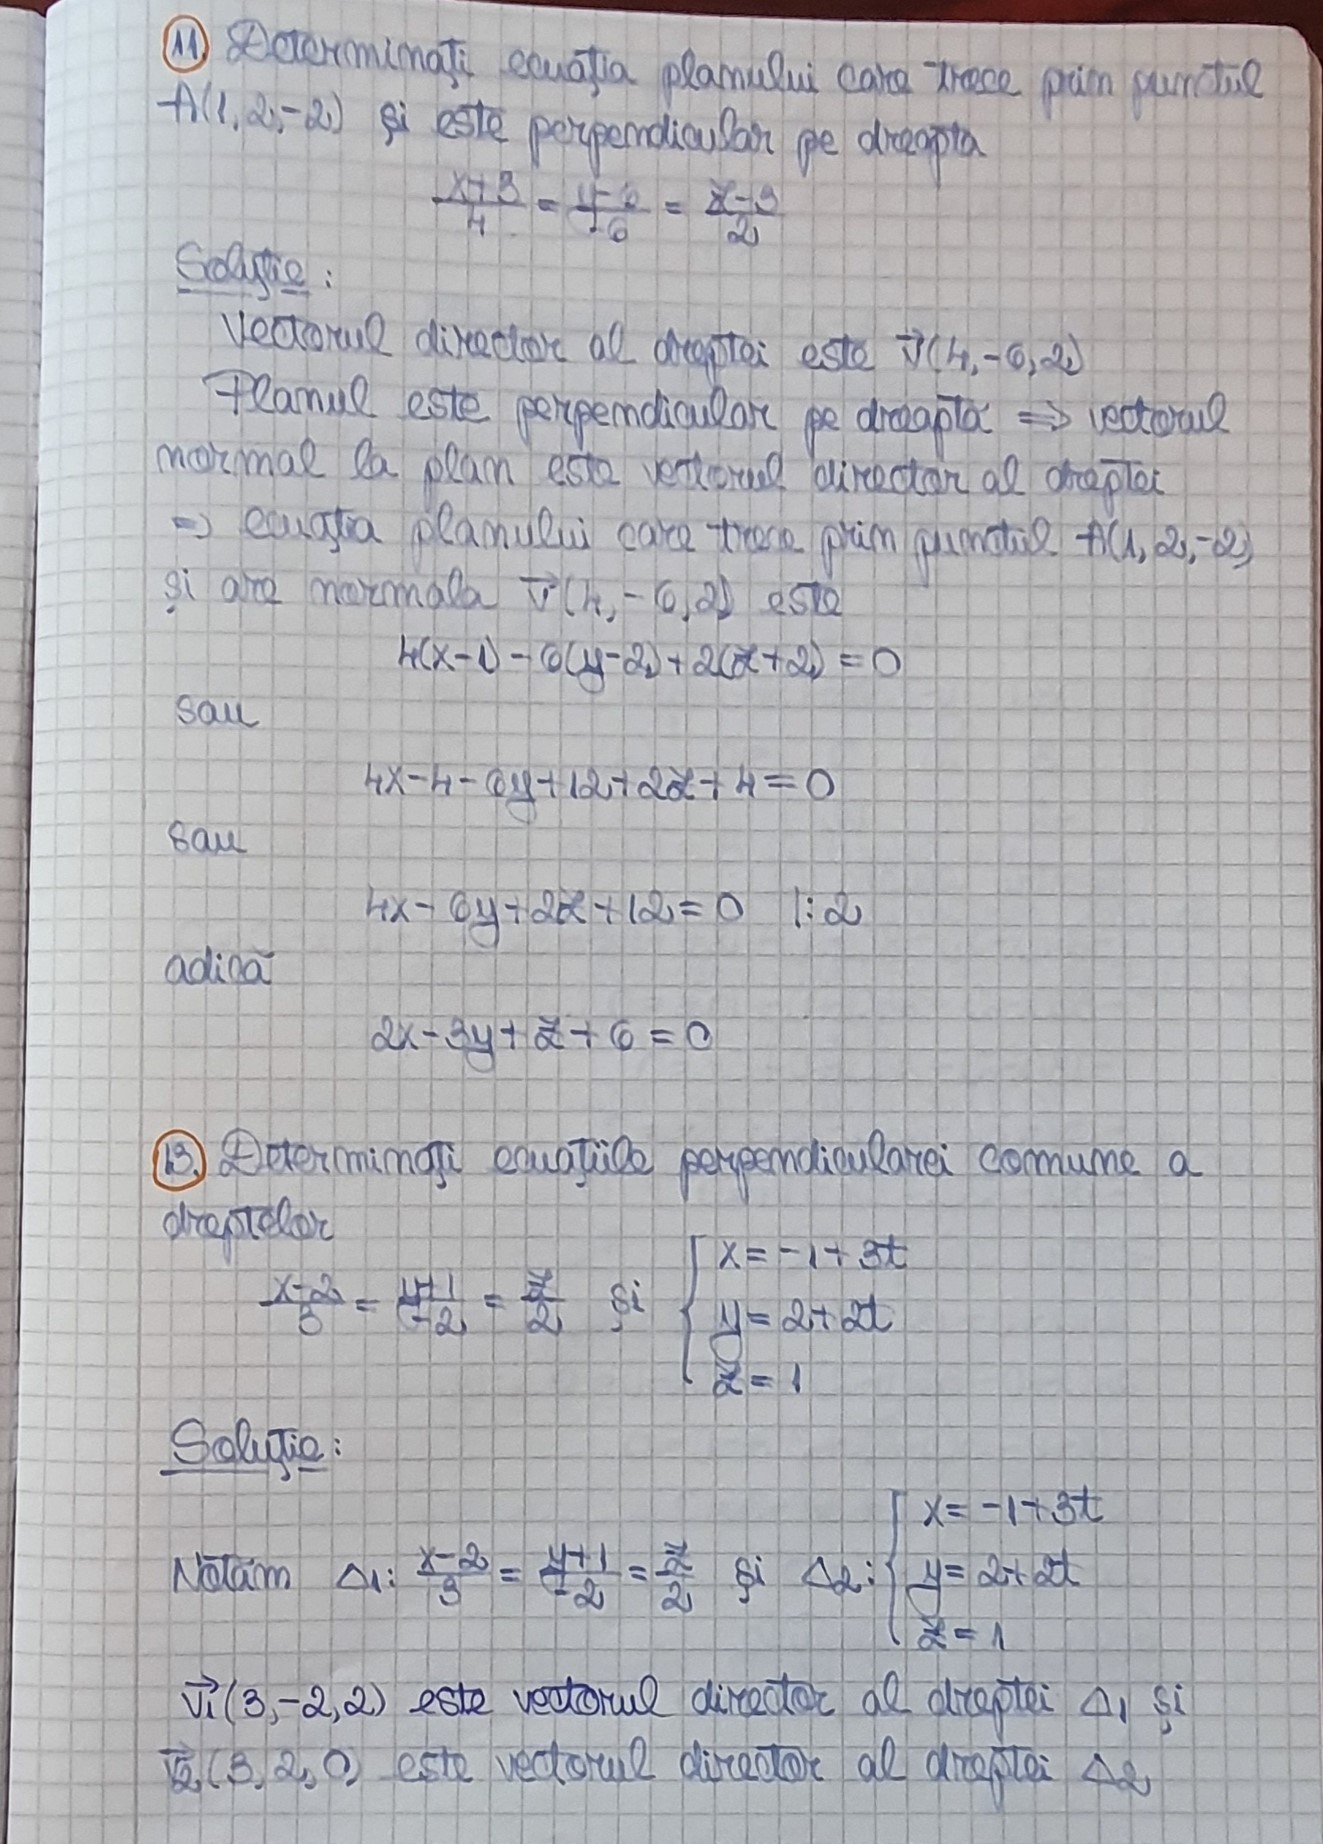 11. Determinați ecuația planului care trece prin punctul
A(1, 2, -2) și este perpendicular pe dreapta
x+3/4 = y-6/-6 = z-3/2
Soluție:
Vectorul director al dreptei este v⃗(4, -6, 2)
Planul este perpendicular pe dreaptă ⇒ vectorul
normal la plan este vectorul director al dreptei
⇒ ecuația planului care trece prin punctul A(1, 2, -2)
și are normala v⃗(4, -6, 2) este
4(x-1) - 6(y-2) + 2(z+2) = 0
sau
4x - 4 - 6y + 12 + 2z + 4 = 0
sau
4x - 6y + 2z + 12 = 0 |: 2
adică
2x - 3y + z + 6 = 0
13. Determinați ecuațiile perpendicularei comune a
dreptelor
x-2/3 = y+1/-2 = z/2 și { x = -1 + 3t
y = 2 + 2t
z = 1
Soluție:
Notăm Δ1: x-2/3 = y+1/-2 = z/2 și Δ2: { x = -1 + 3t
y = 2 + 2t
z = 1
v⃗1(3, -2, 2) este vectorul director al dreptei Δ1 și
v⃗2(3, 2, 0) este vectorul director al dreptei Δ2